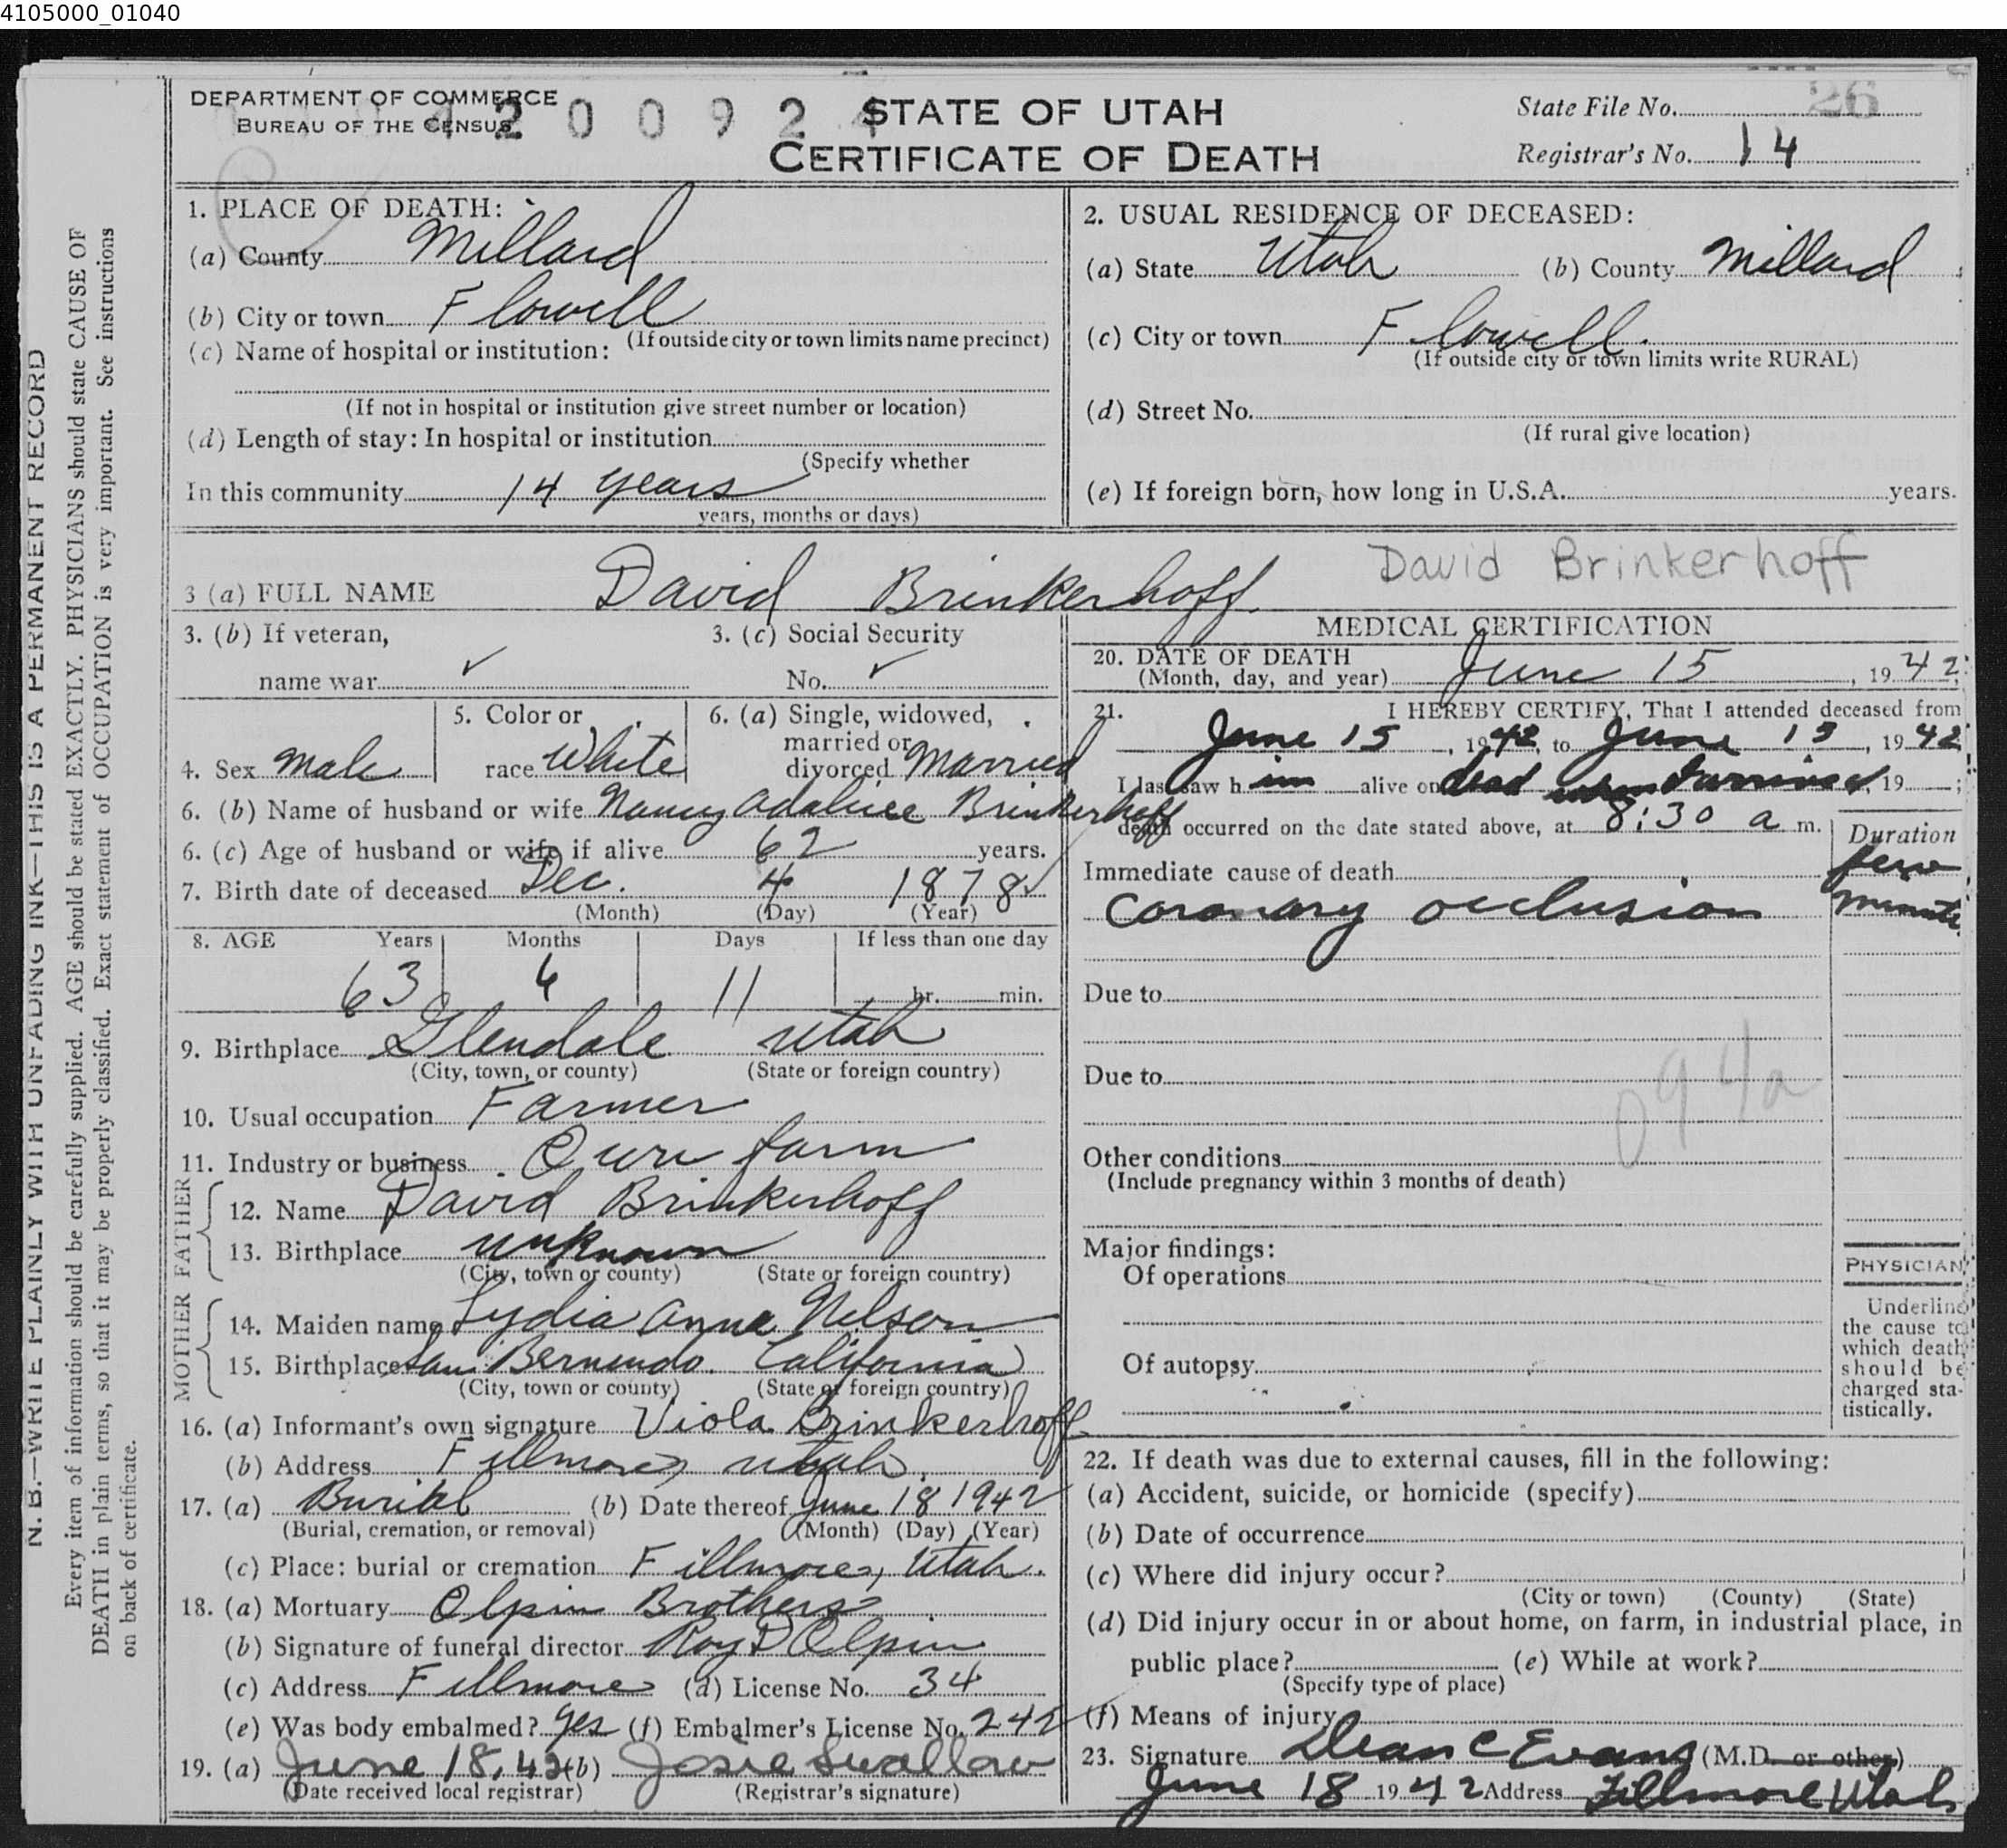 4105000_01040
DEPARTMENT OF COMMERCE
BUREAU OF THE CENSUS
4 2 0 0 9 2 4
STATE OF UTAH
CERTIFICATE OF DEATH
State File No. 26
Registrar's No. 14
1. PLACE OF DEATH:
(a) County Millard
(b) City or town Flowell
(If outside city or town limits name precinct)
(c) Name of hospital or institution:
(If not in hospital or institution give street number or location)
(d) Length of stay: In hospital or institution
(Specify whether
In this community 14 years
years, months or days)
2. USUAL RESIDENCE OF DECEASED:
(a) State Utah (b) County Millard
(c) City or town Flowell.
(If outside city or town limits write RURAL)
(d) Street No.
(If rural give location)
(e) If foreign born, how long in U.S.A. years.
3 (a) FULL NAME David Brinkerhoff David Brinkerhoff
3. (b) If veteran, name war ✓
3. (c) Social Security No. ✓
4. Sex Male
5. Color or race White
6. (a) Single, widowed, married or divorced Married
6. (b) Name of husband or wife Nancy Adaline Brinkerhoff
6. (c) Age of husband or wife if alive 62 years.
7. Birth date of deceased Dec. 4 1878
(Month) (Day) (Year)
8. AGE Years Months Days If less than one day
63 6 11 hr. min.
9. Birthplace Glendale Utah
(City, town, or county) (State or foreign country)
10. Usual occupation Farmer
11. Industry or business Own farm
FATHER
12. Name David Brinkerhoff
13. Birthplace unknown
(City, town or county) (State or foreign country)
MOTHER
14. Maiden name Lydia Anna Nelson
15. Birthplace San Bernendo. California
(City, town or county) (State or foreign country)
16. (a) Informant's own signature Viola Brinkerhoff
(b) Address Fillmore, Utah.
17. (a) Burial (b) Date thereof June 18 1942
(Burial, cremation, or removal) (Month) (Day) (Year)
(c) Place: burial or cremation Fillmore, Utah.
18. (a) Mortuary Olpin Brothers
(b) Signature of funeral director Roy D Olpin
(c) Address Fillmore (d) License No. 34
(e) Was body embalmed? yes (f) Embalmer's License No. 242
19. (a) June 18, 42 (b) Josie Swallow
(Date received local registrar) (Registrar's signature)
MEDICAL CERTIFICATION
20. DATE OF DEATH
(Month, day, and year) June 15, 1942
21. I HEREBY CERTIFY, That I attended deceased from
June 15, 1942, to June 15, 1942
I last saw him alive on dead when I arrived, 19 ;
death occurred on the date stated above, at 8:30 a m.
Duration
Immediate cause of death few
Coronary occlusion minute
Due to
Due to
094a
Other conditions
(Include pregnancy within 3 months of death)
Major findings:
Of operations
Of autopsy
PHYSICIAN
Underline
the cause to
which death
should be
charged sta-
tistically.
22. If death was due to external causes, fill in the following:
(a) Accident, suicide, or homicide (specify)
(b) Date of occurrence
(c) Where did injury occur?
(City or town) (County) (State)
(d) Did injury occur in or about home, on farm, in industrial place, in
public place? (e) While at work?
(Specify type of place)
(f) Means of injury
23. Signature Dean C Evans (M.D. or other)
June 18 1942 Address Fillmore Utah
N. B.—WRITE PLAINLY WITH UNFADING INK—THIS IS A PERMANENT RECORD
Every item of information should be carefully supplied. AGE should be stated EXACTLY. PHYSICIANS should state CAUSE OF
DEATH in plain terms, so that it may be properly classified. Exact statement of OCCUPATION is very important. See instructions
on back of certificate.